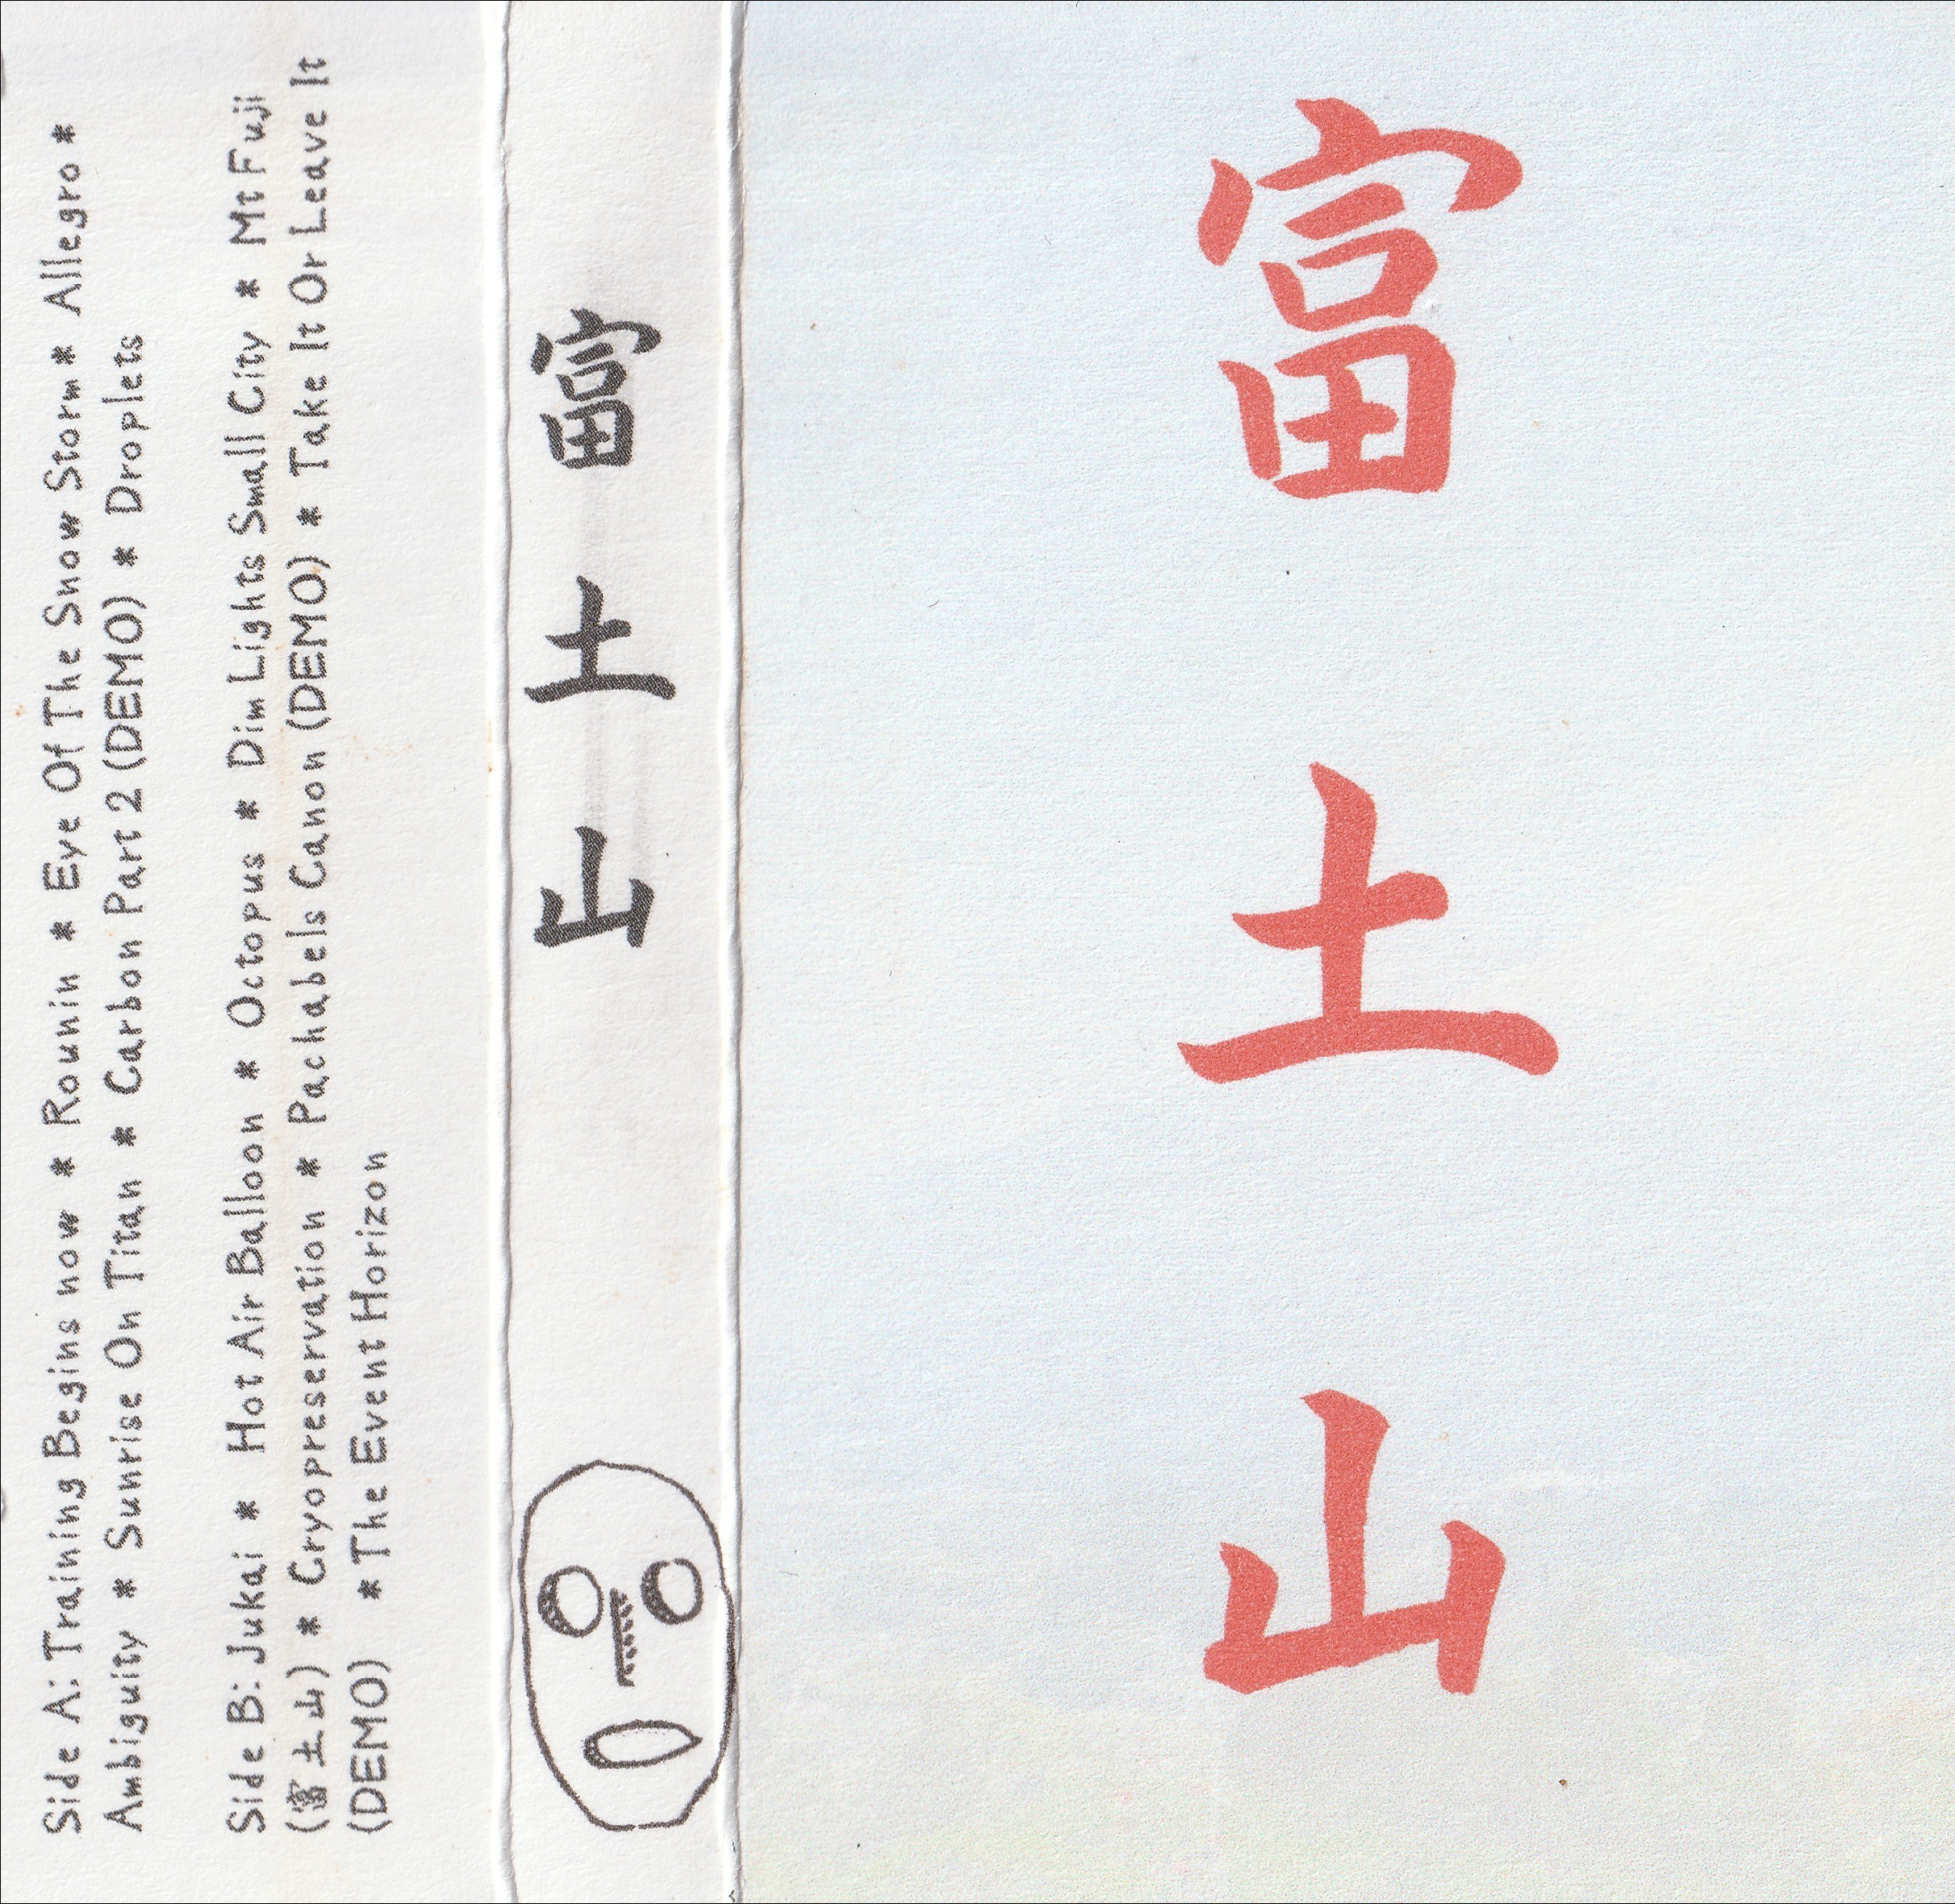 Side A: Training Begins now * Rounin * Eye Of The Snow Storm * Allegro *
Ambiguity * Sunrise On Titan * Carbon Part 2 (DEMO) * Droplets
Side B: Jukai * Hot Air Balloon * Octopus * Dim Lights Small City * Mt Fuji
(富土山) * Cryopreservation * Pachabels Canon (DEMO) * Take It Or Leave It
(DEMO) * The Event Horizon
富土山
富土山